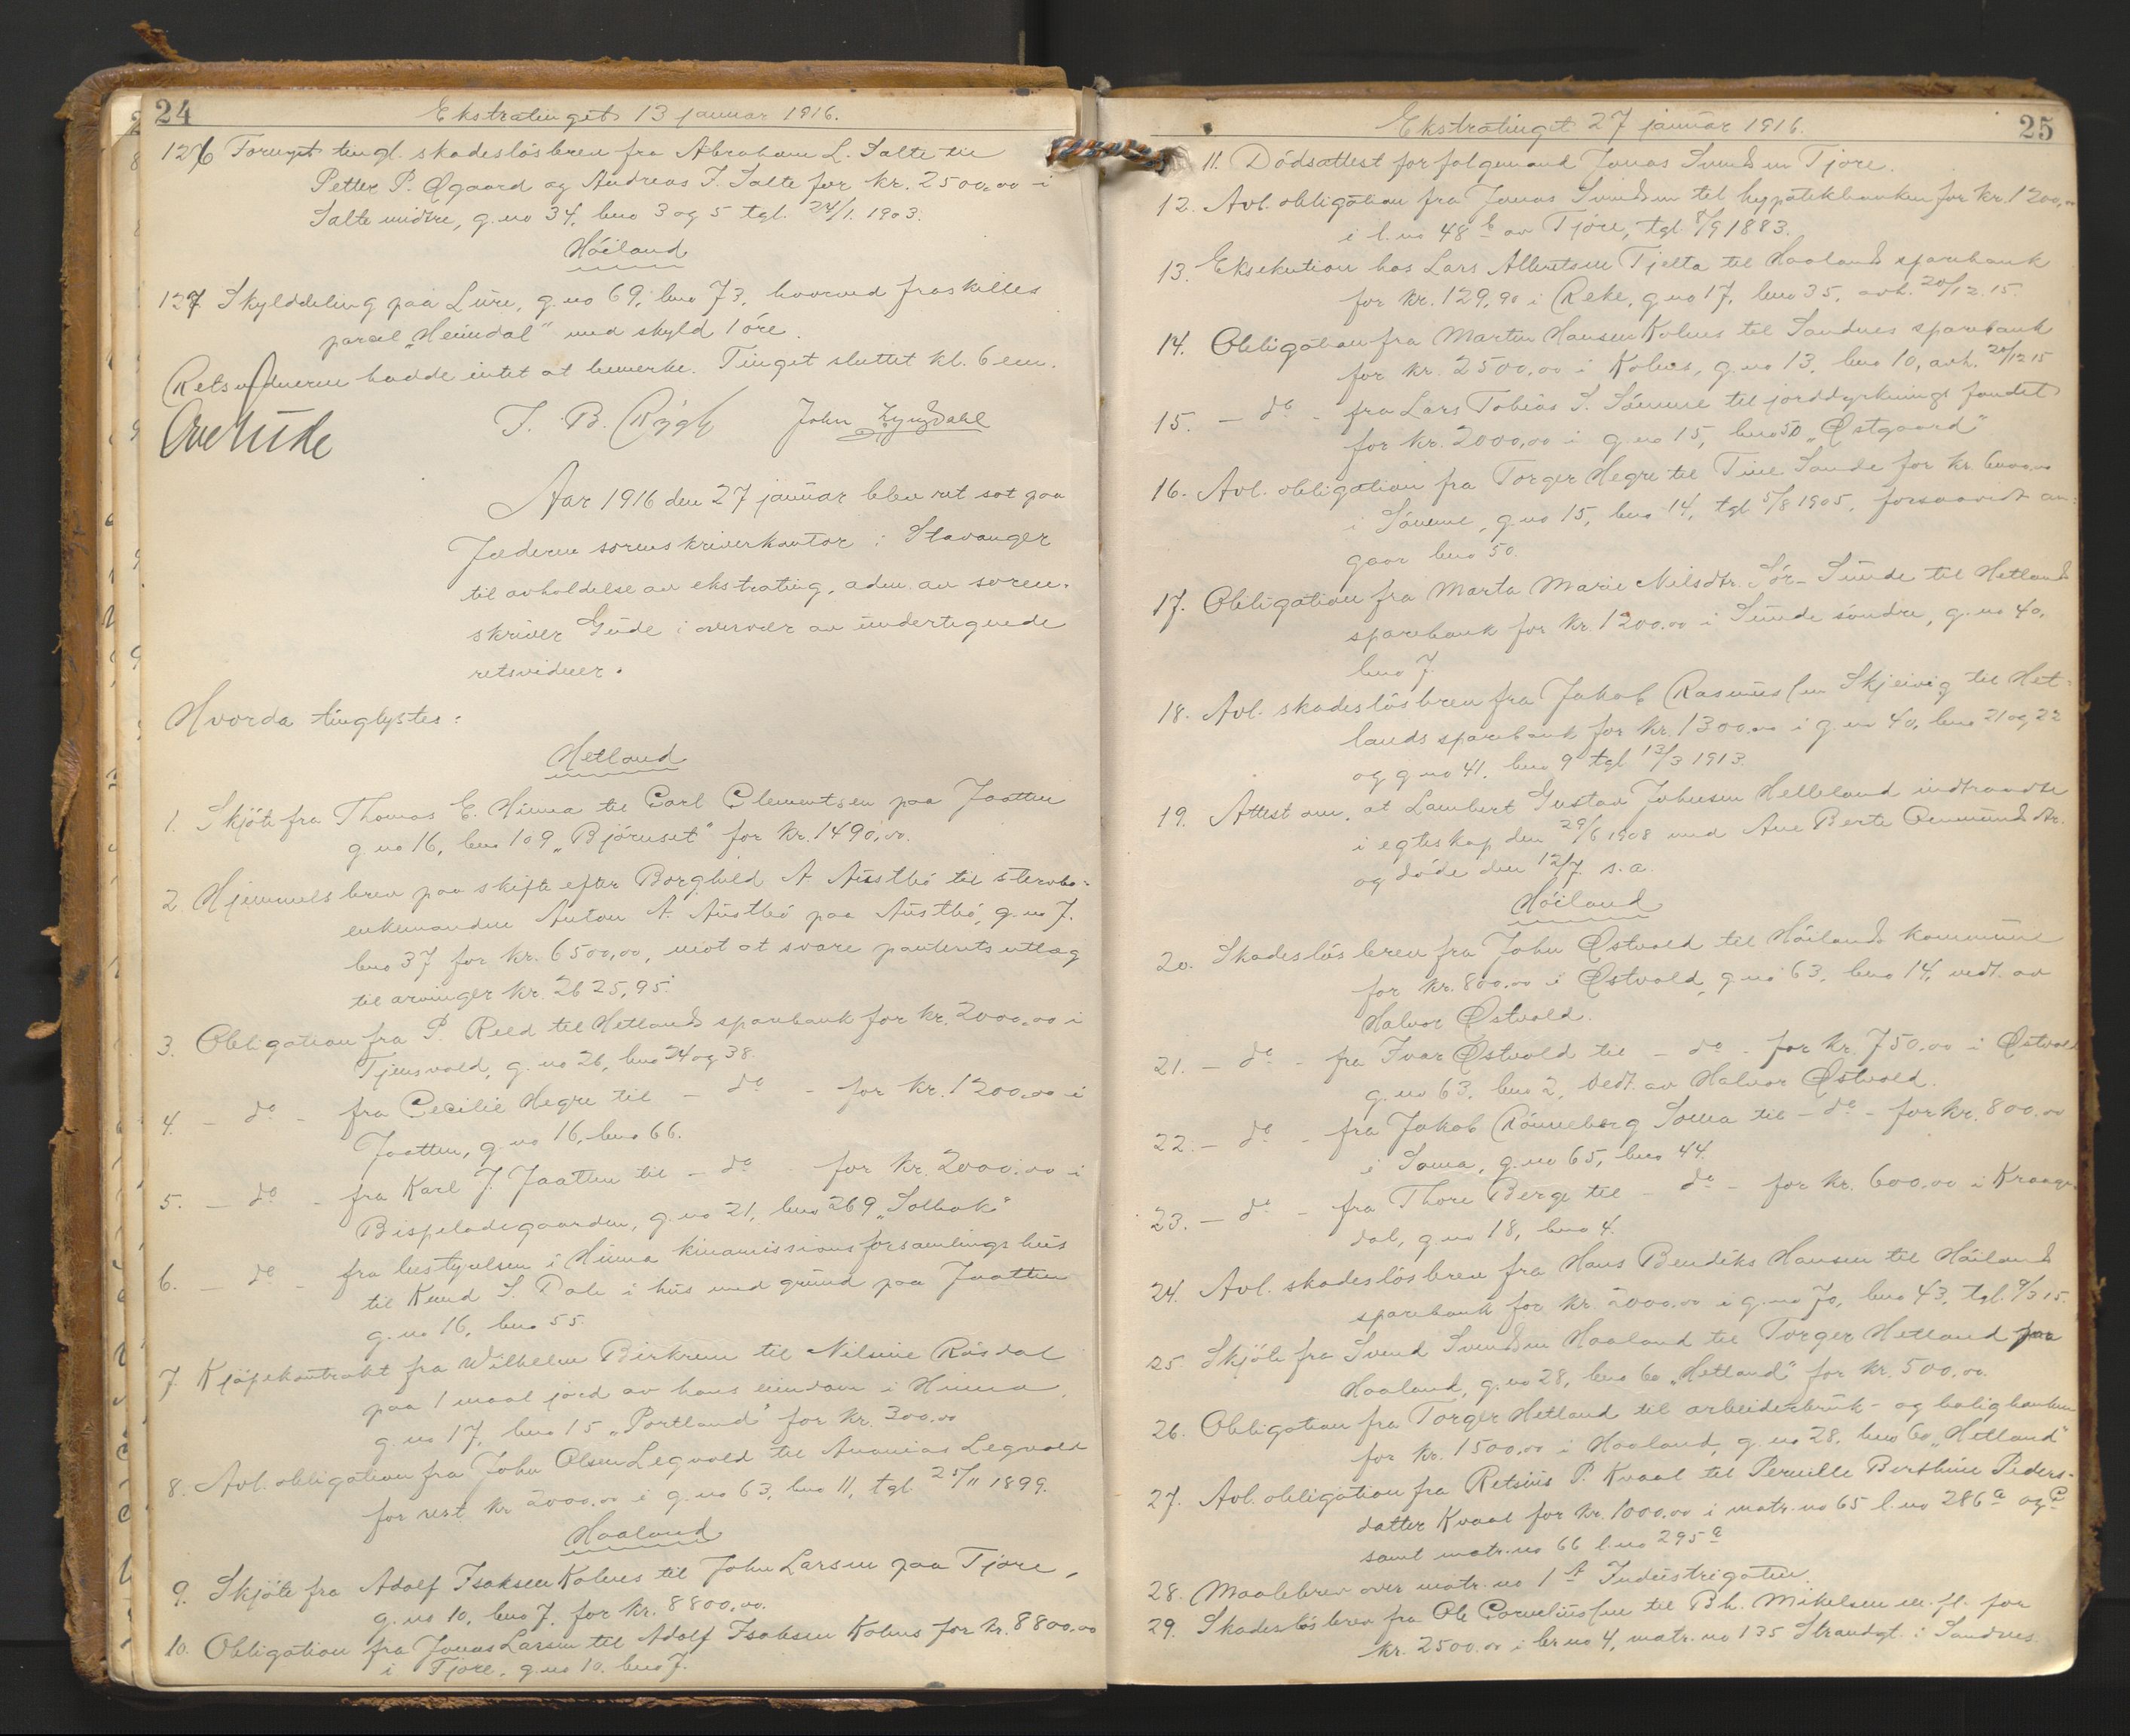 24
Ekstratinget 13 januar 1916.
126 Fornyet tingl. skadeslösbrev fra Abraham L. Salte til
Petter P. Øgaard og Andreas T. Salte for kr. 2500,00 i
Salte midtre, g.no 34, bno 3 og 5 tgl. 24/1. 1903.
Höiland
127 Skylddeling paa Lure, g.no 69, bno 73, hvorved fraskilles
parcel "Heimdal" med skyld 1 öre.
Retsvidnerne hadde intet at bemerke. Tinget sluttet kl. 6 em.
T. B. Rygh John Lyngdahl
Aar 1916 den 27 januar blev ret sat paa
Jæderen sorenskriverkontor i Stavanger
til avholdelse av ekstrating, adm. av soren-
skriver Gude i overvær av undertegnede
retsvidner.
Hvorda tinglystes:
Hetland
1. Skjöte fra Thomas E. Hinna til Carl Clementsen paa Jaatten
g.no 16, bno 109 "Björnset" for kr. 1490,00.
2. Hjemmelsbrev paa skifte efter Borghild A. Austbö til stervbo-
enkemanden Anton A. Austbö paa Austbö, g.no 7.
bno 37 for kr. 6500,00, mot at svare panterets utlæg
til arvinger kr. 2625,95.
3. Obligation fra P. Reed til Hetlands sparebank for kr. 2000,00 i
Tjensvold, g.no 26, bno 24 og 38.
4. - do - fra Cecilie Hegre til - do - for kr. 1200,00 i
Jaatten, g.no 16, bno 66.
5. - do - fra Karl J. Jaatten til - do - for kr. 2000,00 i
Bispeladegaarden, g.no 21, bno 269 "Solbak"
6. - do - fra bestyrelsen i Hinna kinamissions forsamlingshus
til Knud S. Dale i hus med grund paa Jaatten
g.no 16, bno 55.
7. Kjöpekontrakt fra Wilhelm Birkrem til Nilsine Rösdal
paa 1 maal jord av hans eiendom i Hinna,
g.no 17, bno 15 "Portland" for kr. 300,00
8. Avl. obligation fra John Olsen Legvold til Ananias Legvold
for rest kr 2000,00 i g.no 63, bno 11, tgl 25/11 1899.
Haaland
9. Skjöte fra Adolf Isaksen Kolnes til John Larsen paa Tjore,
g.no 10, bno 7, for kr. 8800,00.
10. Obligation fra Jonas Larsen til Adolf Isaksen Kolnes for kr. 8800,00
i Tjore, g.no 10. bno 7.
Ekstratinget 27 januar 1916.
25
11. Dödsattest for folgemand Jonas Svendsen Tjore.
12. Avl. obligation fra Jonas Svendsen til hypotekbanken for kr. 1200,00
i l.no 48 b av Tjore, tgl 8/9 1883.
13. Eksekution hos Lars Albretsen Tjelta til Haalands sparebank
for kr. 129,90 i Reke, g.no 17, bno 35, avh. 20/12. 15.
14. Obligation fra Martin Hansen Kolnes til Sandnes sparebank
for kr. 2500,00 i Kolnes, g.no 13, bno 10, avh. 20/12 15
15. - do - fra Lars Tobias S. Sömme til jorddyrkningsfondet
for kr. 2000,00 i g.no 15, bno 50 "Østgaard"
16. Avl. obligation fra Torger Hegre til Tine Sande for kr. 6000,00
i Sömme, g.no 15, bno 14, tgl 5/8 1905, forsaavidt an-
gaar bno 50.
17. Obligation fra Marta Marie Nilsdtr. Sör-Sunde til Hetlands
sparebank for kr. 1200.00 i Sunde söndre, g.no 40,
bno 7
18. Avl. skadeslösbrev fra Jakob Rasmussen Skjeivig til Het-
lands sparebank for kr. 1300.00 i g.no 40, bno 21 og 22
og g.no 41. bno 9 tgl 13/3 1913.
19. Attest om, at Lambert Gustav Johnsen Helleland indtraadte
i egteskap den 29/6 1908 med Ane Berte Omundsdtr.
og döde den 12/7. s.a.
Höiland
20. Skadeslösbrev fra John Østvold til Höilands kommune
for kr. 800.00 i Østvold, g.no 63, bno 14, vedt. av
Halvor Østvold.
21. - do - fra Ivar Østvold til - do - for kr. 750,00 i Østvold
g.no 63, bno 2, vedt. av Halvor Østvold.
22. - do - fra Jakob Rönneberg Soma til - do - for kr. 800.00
i Soma, g.no 65, bno 44.
23. - do - fra Thore Berge til - do - for kr. 600.00 i Kraage-
dal, g.no 18, bno 4.
24. Avl. skadeslösbrev fra Hans Bendiks Hansen til Höilands
sparebank for kr. 2000.00 i g.no 70, bno 43, tgl. 9/3 15.
25 Skjöte fra Svend Svendsen Haaland til Torger Hetland paa
Haaland, g.no 28, bno 60 "Hetland" for kr. 500,00.
26. Obligation fra Torger Hetland til arbeiderbruk- og boligbanken
for kr. 1500.00 i Haaland, g.no 28, bno 60 "Hetland"
27. Avl. obligation fra Retsius P. Kvaal til Pernille Berthine Peders-
datter Kvaal for kr. 1000.00 i matr.no 65 l.no 286 a og c
samt matr.no 66 l.no 295 a
28. Maalebrev over matr.no 1 A Industrigaten.
29. Skadeslösbrev fra Ole Corneliussen til Bh. Mikelsen m.fl. for
kr. 2500.00 i br.no 4, matr.no 135 Strandgt. i Sandnes.